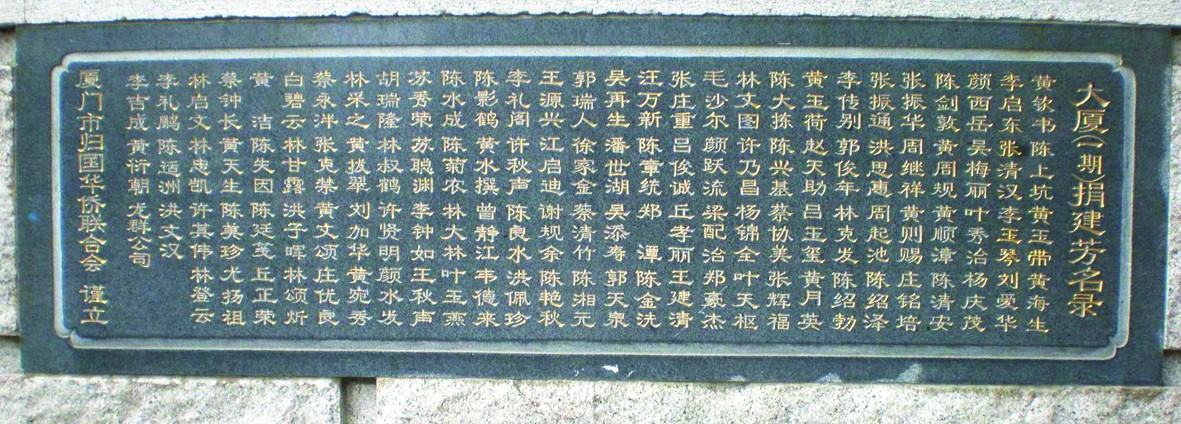 大厦(一期)捐建芳名录
黄钦书 陈上坑 黄玉带 黄海生
李启东 张清汉 李玉琴 刘爱华
颜西岳 吴梅丽 叶秀治 杨庆茂
陈剑敦 黄周规 黄顺漳 陈清安
张振华 周继祥 黄则赐 庄铭培
张振通 洪思惠 周起池 陈绍泽
李传别 郭俊年 林克发 陈绍勃
黄玉荷 赵天助 吕玉玺 黄月英
陈大拣 陈兴基 蔡协美 张辉福
林文图 许乃昌 杨锦全 叶天枢
毛沙尔 颜跃流 梁配治 郑豪杰
张庄重 吕俊诚 丘孝丽 王建清
汪万新 陈章统 郑 潭 陈金洗
吴再生 潘世湖 吴添寿 郭天泉
郭瑞人 徐家金 蔡清竹 陈湘元
王源兴 江启迪 谢规余 陈艳秋
李礼阁 许秋声 陈良水 洪佩珍
陈影鹤 黄水撰 曾静江 韦德来
陈水成 陈菊农 林大林 叶玉燕
苏秀荣 苏聪渊 李钟如 王秋声
胡瑞隆 林叔鹤 许贤明 颜水发
林采之 黄拨翠 刘加华 黄宛秀
蔡永泮 张克攀 黄文颂 庄优良
白碧云 林甘露 洪子晖 林颂炘
黄 洁 陈失因 陈廷蔓 丘正荣
蔡钟长 黄天生 陈美珍 尤扬祖
林启文 林忠凯 许其伟 林登云
李礼鹏 陈适洲 洪文汉
李吉成 黄衍朝 龙群公司
厦门市归国华侨联合会 谨立